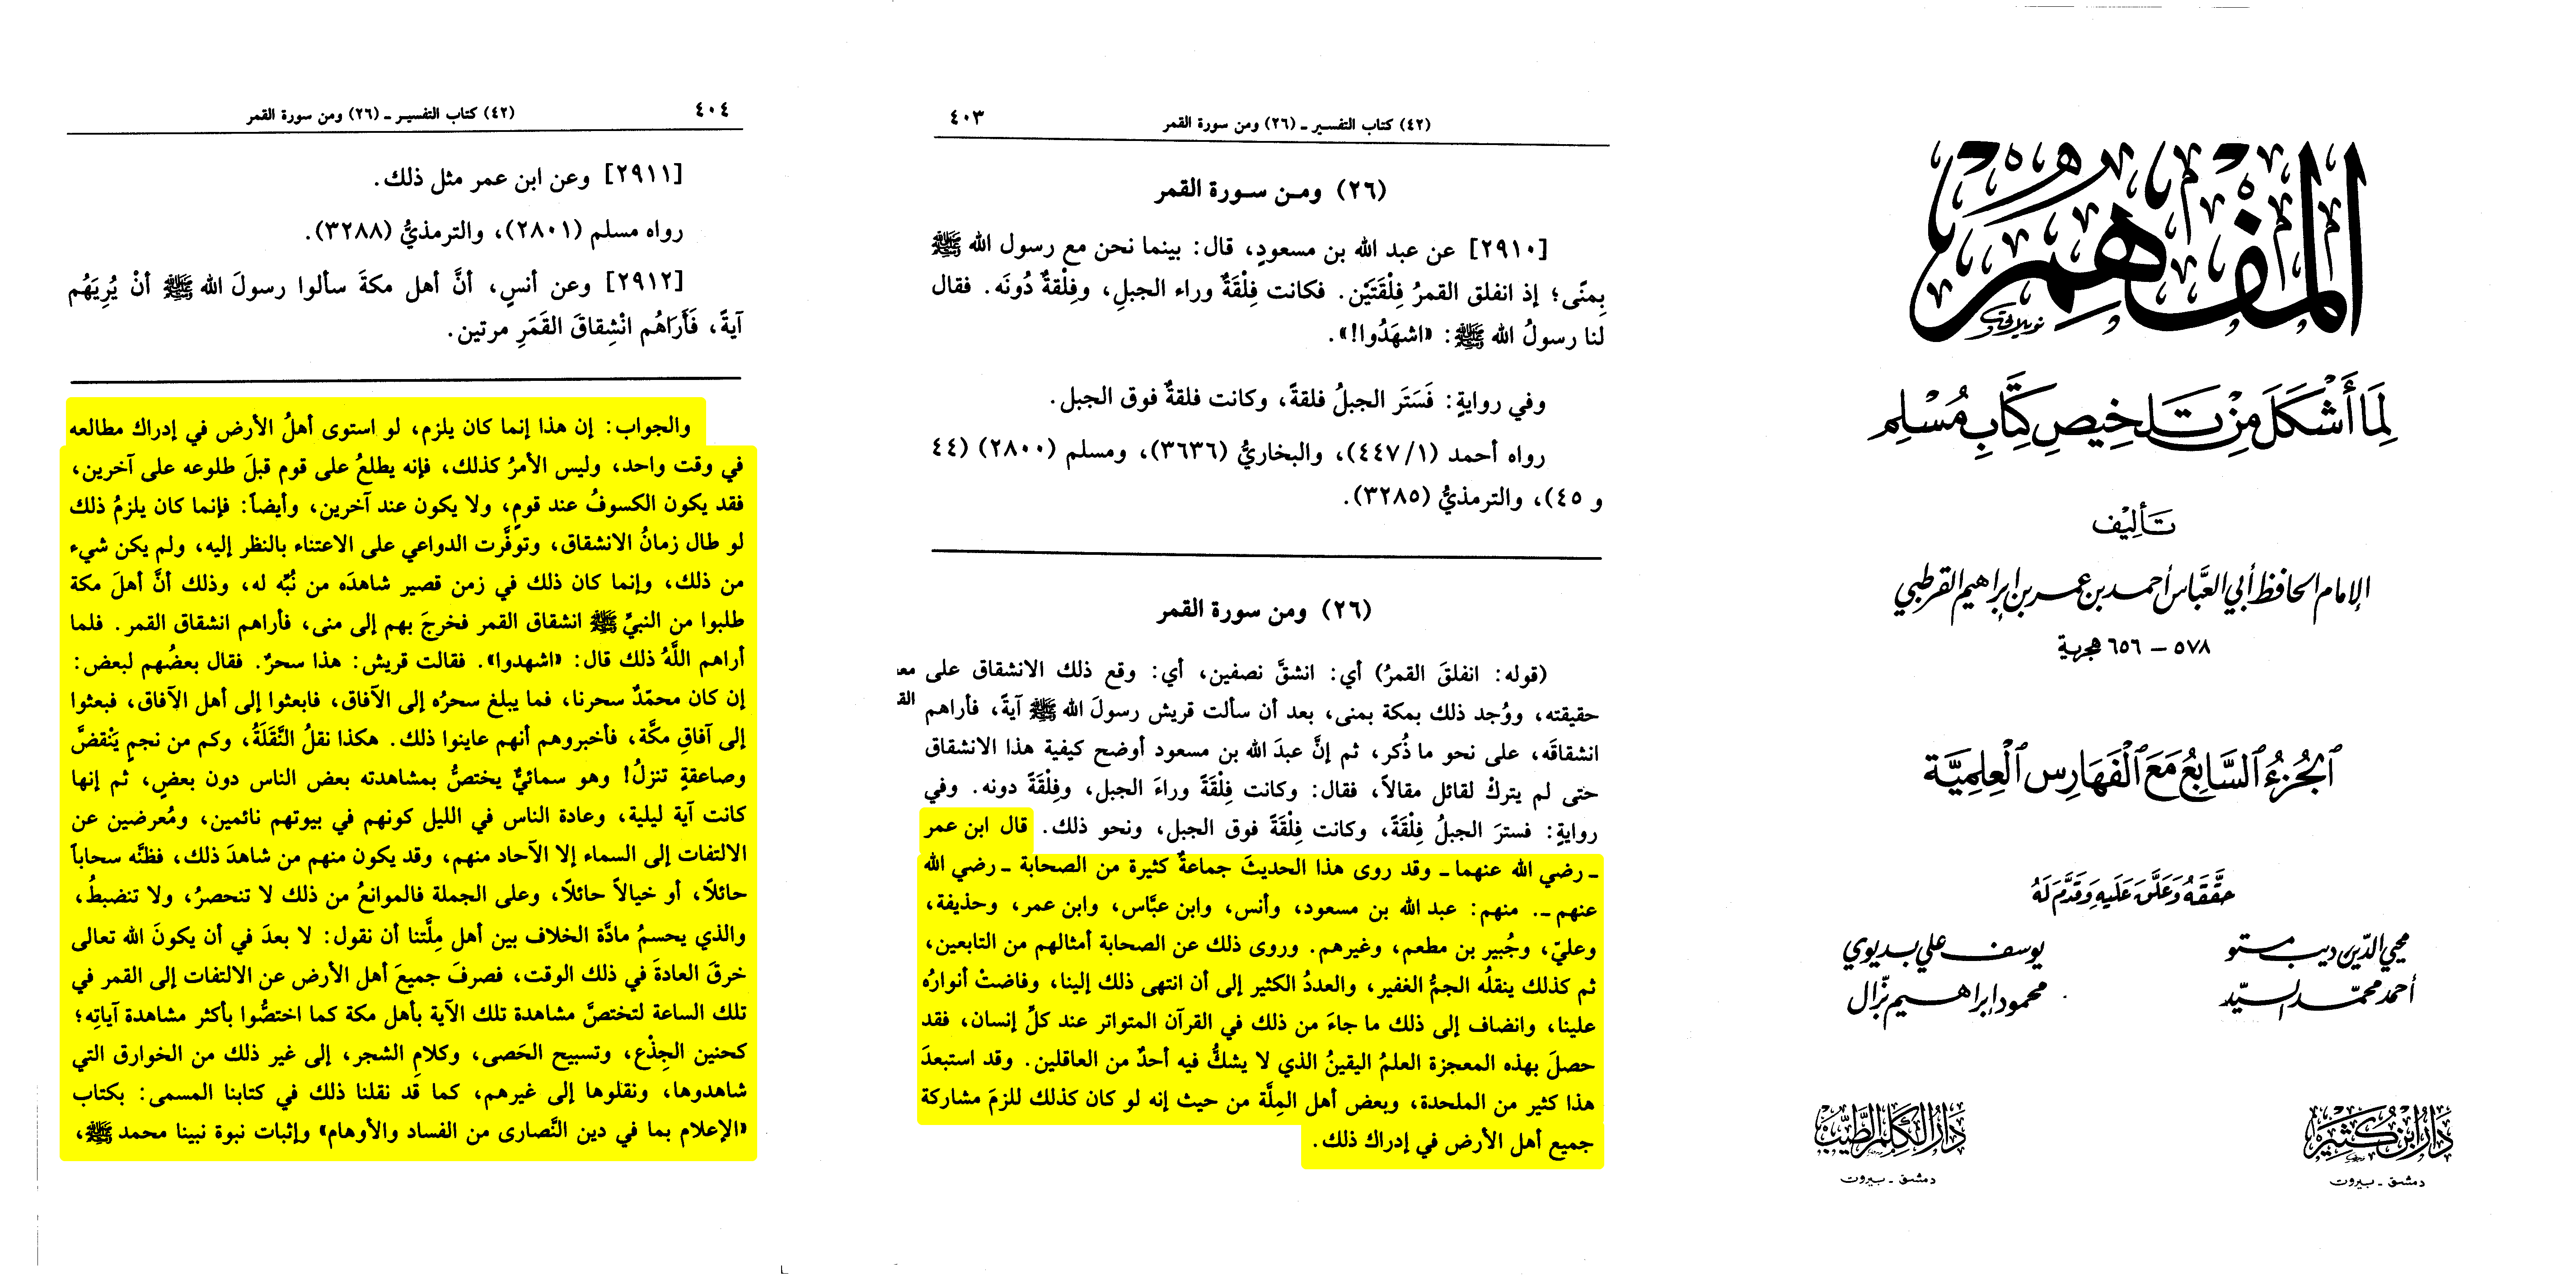 المفهم
لِمَا أَشْكَلَ مِنْ تَلخِيصِ كِتَابِ مُسْلِم
تَأليْف
الإمام الحافظ أبي العبَّاس أحمد بن عمر بن إبراهيم القرطبي
٥٧٨ – ٦٥٦ هجرية
الجُزءُ السَّابِعُ مَعَ الْفَهَارِسِ الْعِلمِيَّة
حَقَّقَهُ وَعَلَّقَ عَلَيهِ وَقَدَّمَ لَهُ
محيي الدّين ديب مستو    يوسف علي بديوي
أحمد محمّد السيّد    محمود إبراهيم بزّال
دار ابن كثير    دار الكلم الطيب
دمشق ـ بيروت    دمشق ـ بيروت
(٤٢) كتاب التفسير ـ (٢٦) ومن سورة القمر    ٤٠٣
(٢٦) ومـن سـورة القمر
[٢٩١٠] عن عبد الله بن مسعودٍ، قال: بينما نحن مع رسول الله ﷺ
بِمنًى؛ إذ انفلق القمرُ فِلْقَتَيْن. فكانت فِلْقَةٌ وراء الجبلِ، وفِلْقةٌ دُونَه. فقال
لنا رسولُ الله ﷺ: «اشهَدُوا!».
وفي روايةٍ: فَسَتَر الجبلُ فلقةً، وكانت فلقةٌ فوق الجبل.
رواه أحمد (٤٤٧/١)، والبخاريُّ (٣٦٣٦)، ومسلم (٢٨٠٠) (٤٤
و ٤٥)، والترمذيُّ (٣٢٨٥).
(٢٦) ومن سورة القمر
(قوله: انفلقَ القمرُ) أي: انشقَّ نصفين، أي: وقع ذلك الانشقاق على معـ
حقيقته، ووُجد ذلك بمكة بمنى، بعد أن سألت قريش رسولَ الله ﷺ آيةً، فأراهم القـ
انشقاقَه، على نحو ما ذُكر، ثم إنَّ عبدَ الله بن مسعود أوضح كيفية هذا الانشقاق
حتى لم يتركْ لقائل مقالاً، فقال: وكانت فِلْقَةً وراءَ الجبل، وفِلْقَةً دونه. وفي
روايةٍ: فسترَ الجبلُ فِلْقَةً، وكانت فِلْقَةً فوق الجبل، ونحو ذلك. قال ابن عمر
ـ رضي الله عنهما ـ وقد روى هذا الحديثَ جماعةٌ كثيرة من الصحابة ـ رضي الله
عنهم ـ. منهم: عبد الله بن مسعود، وأنس، وابن عبَّاس، وابن عمر، وحذيفة،
وعليّ، وجُبير بن مطعم، وغيرهم. وروى ذلك عن الصحابة أمثالهم من التابعين،
ثم كذلك ينقلُه الجمُّ الغفير، والعددُ الكثير إلى أن انتهى ذلك إلينا، وفاضتْ أنوارُه
علينا، وانضاف إلى ذلك ما جاءَ من ذلك في القرآن المتواتر عند كلِّ إنسان، فقد
حصلَ بهذه المعجزة العلمُ اليقينُ الذي لا يشكُّ فيه أحدٌ من العاقلين. وقد استبعدَ
هذا كثير من الملحدة، وبعض أهل المِلَّة من حيث إنه لو كان كذلك للزمَ مشاركة
جميع أهل الأرض في إدراك ذلك.
٤٠٤    (٤٢) كتاب التفسير ـ (٢٦) ومن سورة القمر
[٢٩١١] وعن ابن عمر مثل ذلك.
رواه مسلم (٢٨٠١)، والترمذيُّ (٣٢٨٨).
[٢٩١٢] وعن أنسٍ، أنَّ أهل مكةَ سألوا رسولَ الله ﷺ أنْ يُرِيَهُم
آيةً، فَأَرَاهُم انْشِقاقَ القَمَرِ مرتين.
والجواب: إن هذا إنما كان يلزم، لو استوى أهلُ الأرض في إدراك مطالعه
في وقت واحد، وليس الأمرُ كذلك، فإنه يطلعُ على قوم قبلَ طلوعه على آخرين،
فقد يكون الكسوفُ عند قومٍ، ولا يكون عند آخرين، وأيضاً: فإنما كان يلزمُ ذلك
لو طال زمانُ الانشقاق، وتوفَّرت الدواعي على الاعتناء بالنظر إليه، ولم يكن شيء
من ذلك، وإنما كان ذلك في زمن قصير شاهدَه من نُبِّه له، وذلك أنَّ أهلَ مكة
طلبوا من النبيِّ ﷺ انشقاق القمر فخرجَ بهم إلى منى، فأراهم انشقاق القمر. فلما
أراهم اللَّهُ ذلك قال: «اشهدوا». فقالت قريش: هذا سحرٌ. فقال بعضُهم لبعض:
إن كان محمّدٌ سحرنا، فما يبلغ سحرُه إلى الآفاق، فابعثوا إلى أهل الآفاق، فبعثوا
إلى آفاقِ مكَّة، فأخبروهم أنهم عاينوا ذلك. هكذا نقلُ النَّقَلَةُ، وكم من نجمٍ يَنْقضَّ
وصاعقةٍ تنزلُ! وهو سمائيٌّ يختصُّ بمشاهدته بعض الناس دون بعضٍ، ثم إنها
كانت آية ليلية، وعادة الناس في الليل كونهم في بيوتهم نائمين، ومُعرضين عن
الالتفات إلى السماء إلا الآحاد منهم، وقد يكون منهم من شاهدَ ذلك، فظنَّه سحاباً
حائلاً، أو خيالاً حائلاً، وعلى الجملة فالموانعُ من ذلك لا تنحصرُ، ولا تنضبطُ،
والذي يحسمُ مادَّة الخلاف بين أهل مِلَّتنا أن نقول: لا بعدَ في أن يكونَ الله تعالى
خرقَ العادةَ في ذلك الوقت، فصرفَ جميعَ أهل الأرض عن الالتفات إلى القمر في
تلك الساعة لتختصَّ مشاهدة تلك الآية بأهل مكة كما اختصُّوا بأكثر مشاهدة آياتِه؛
كحنين الجِذْع، وتسبيح الحَصى، وكلامِ الشجر، إلى غير ذلك من الخوارق التي
شاهدوها، ونقلوها إلى غيرهم، كما قد نقلنا ذلك في كتابنا المسمى: بكتاب
«الإعلام بما في دين النَّصارى من الفساد والأوهام» وإثبات نبوة نبينا محمد ﷺ،